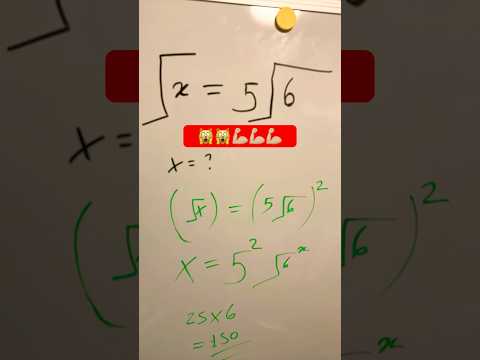 √x = 5√6
🙀🙀💪💪💪
x = ?
(√x) = (5√6)²
x = 5² √6ˣ
25×6
=150